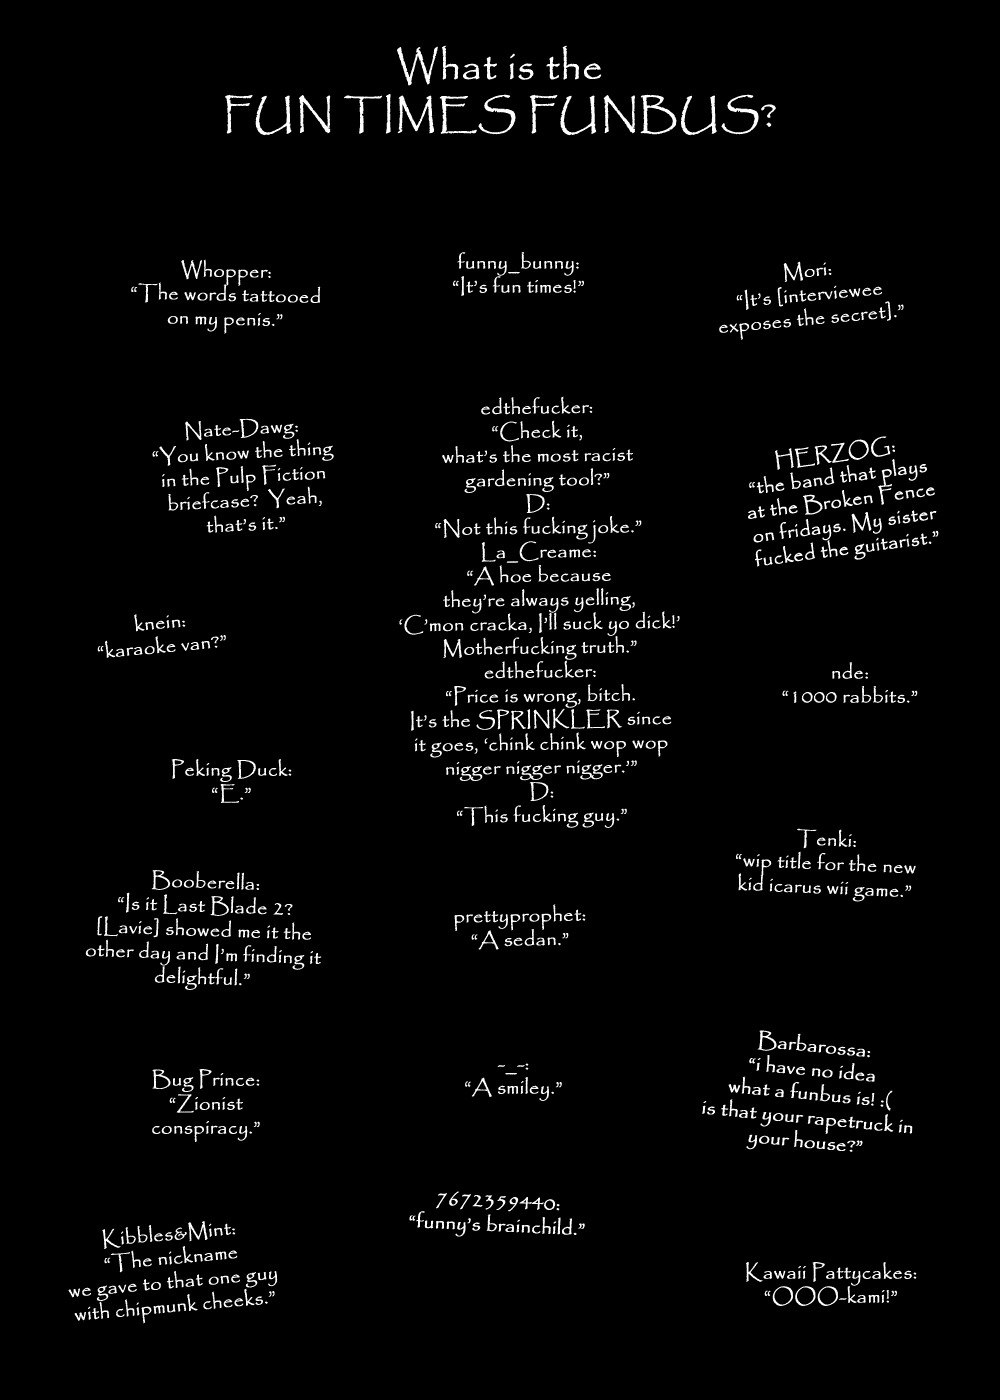 What is the
FUN TIMES FUNBUS?
Whopper:
“The words tattooed
on my penis.”
funny_bunny:
“It’s fun times!”
Mori:
“It’s [interviewee
exposes the secret].”
Nate-Dawg:
“You know the thing
in the Pulp Fiction
briefcase? Yeah,
that’s it.”
edthefucker:
“Check it,
what’s the most racist
gardening tool?”
D:
“Not this fucking joke.”
La_Creame:
“A hoe because
they’re always yelling,
‘C’mon cracka, I’ll suck yo dick!’
Motherfucking truth.”
edthefucker:
“Price is wrong, bitch.
It’s the SPRINKLER since
it goes, ‘chink chink wop wop
nigger nigger nigger.’”
D:
“This fucking guy.”
HERZOG:
“the band that plays
at the Broken Fence
on fridays. My sister
fucked the guitarist.”
knein:
“karaoke van?”
nde:
“1000 rabbits.”
Peking Duck:
“E.”
Tenki:
“wip title for the new
kid icarus wii game.”
Booberella:
“Is it Last Blade 2?
[Lavie] showed me it the
other day and I’m finding it
delightful.”
prettyprophet:
“A sedan.”
Barbarossa:
“i have no idea
what a funbus is! :(
is that your rapetruck in
your house?”
Bug Prince:
“Zionist
conspiracy.”
-_-:
“A smiley.”
7672359440:
“funny’s brainchild.”
Kibbles&Mint:
“The nickname
we gave to that one guy
with chipmunk cheeks.”
Kawaii Pattycakes:
“OOO-kami!”